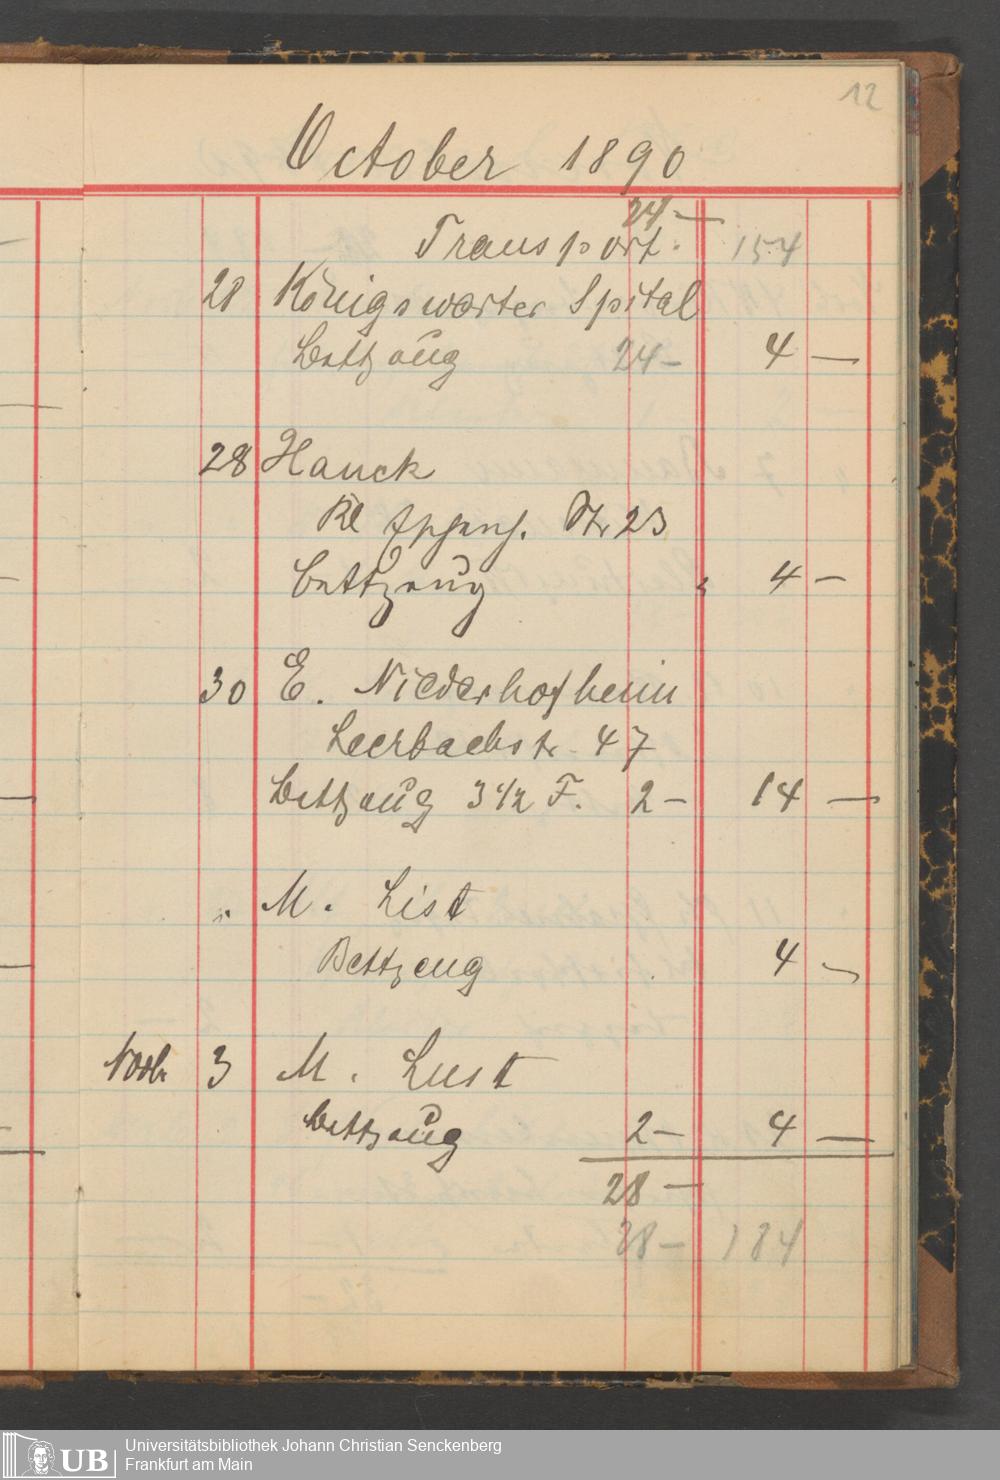 12
October 1890
24 —
Transport. 154
28 Königswarter Spital
bettzeug 24 — 4 —
28 Hauck
Kl Str 23
bettzeug 4 —
30 E. Niederhofheim
Leerbachstr. 47
bettzeug 3 1/2 F. 2 — 14 —
" M. List
Bettzeug 4 —
Novbr 3 M. Lust
bettzeug 2 — 4 —
28 —
28 — 184
UB
Universitätsbibliothek Johann Christian Senckenberg
Frankfurt am Main